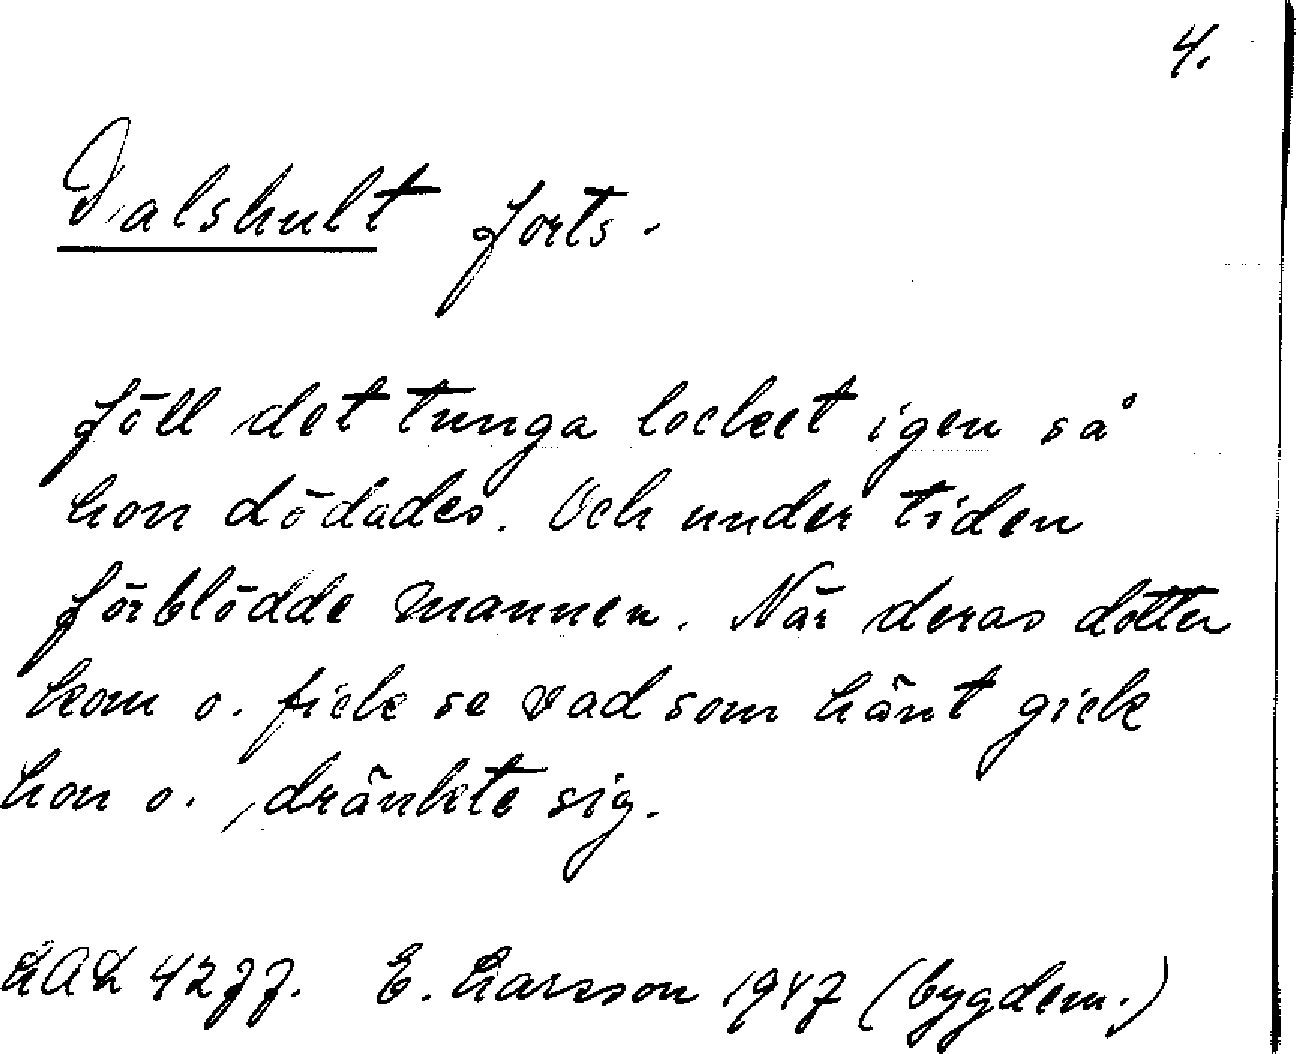 4.
Dalshult forts.
föll det tunga locket igen så
hon dödades. Och under tiden
förblödde mannen. När deras dotter
kom o. fick se vad som hänt gick
hon o. dränkte sig.
LAL 4277. E. Larsson 1947 (bygdem.)